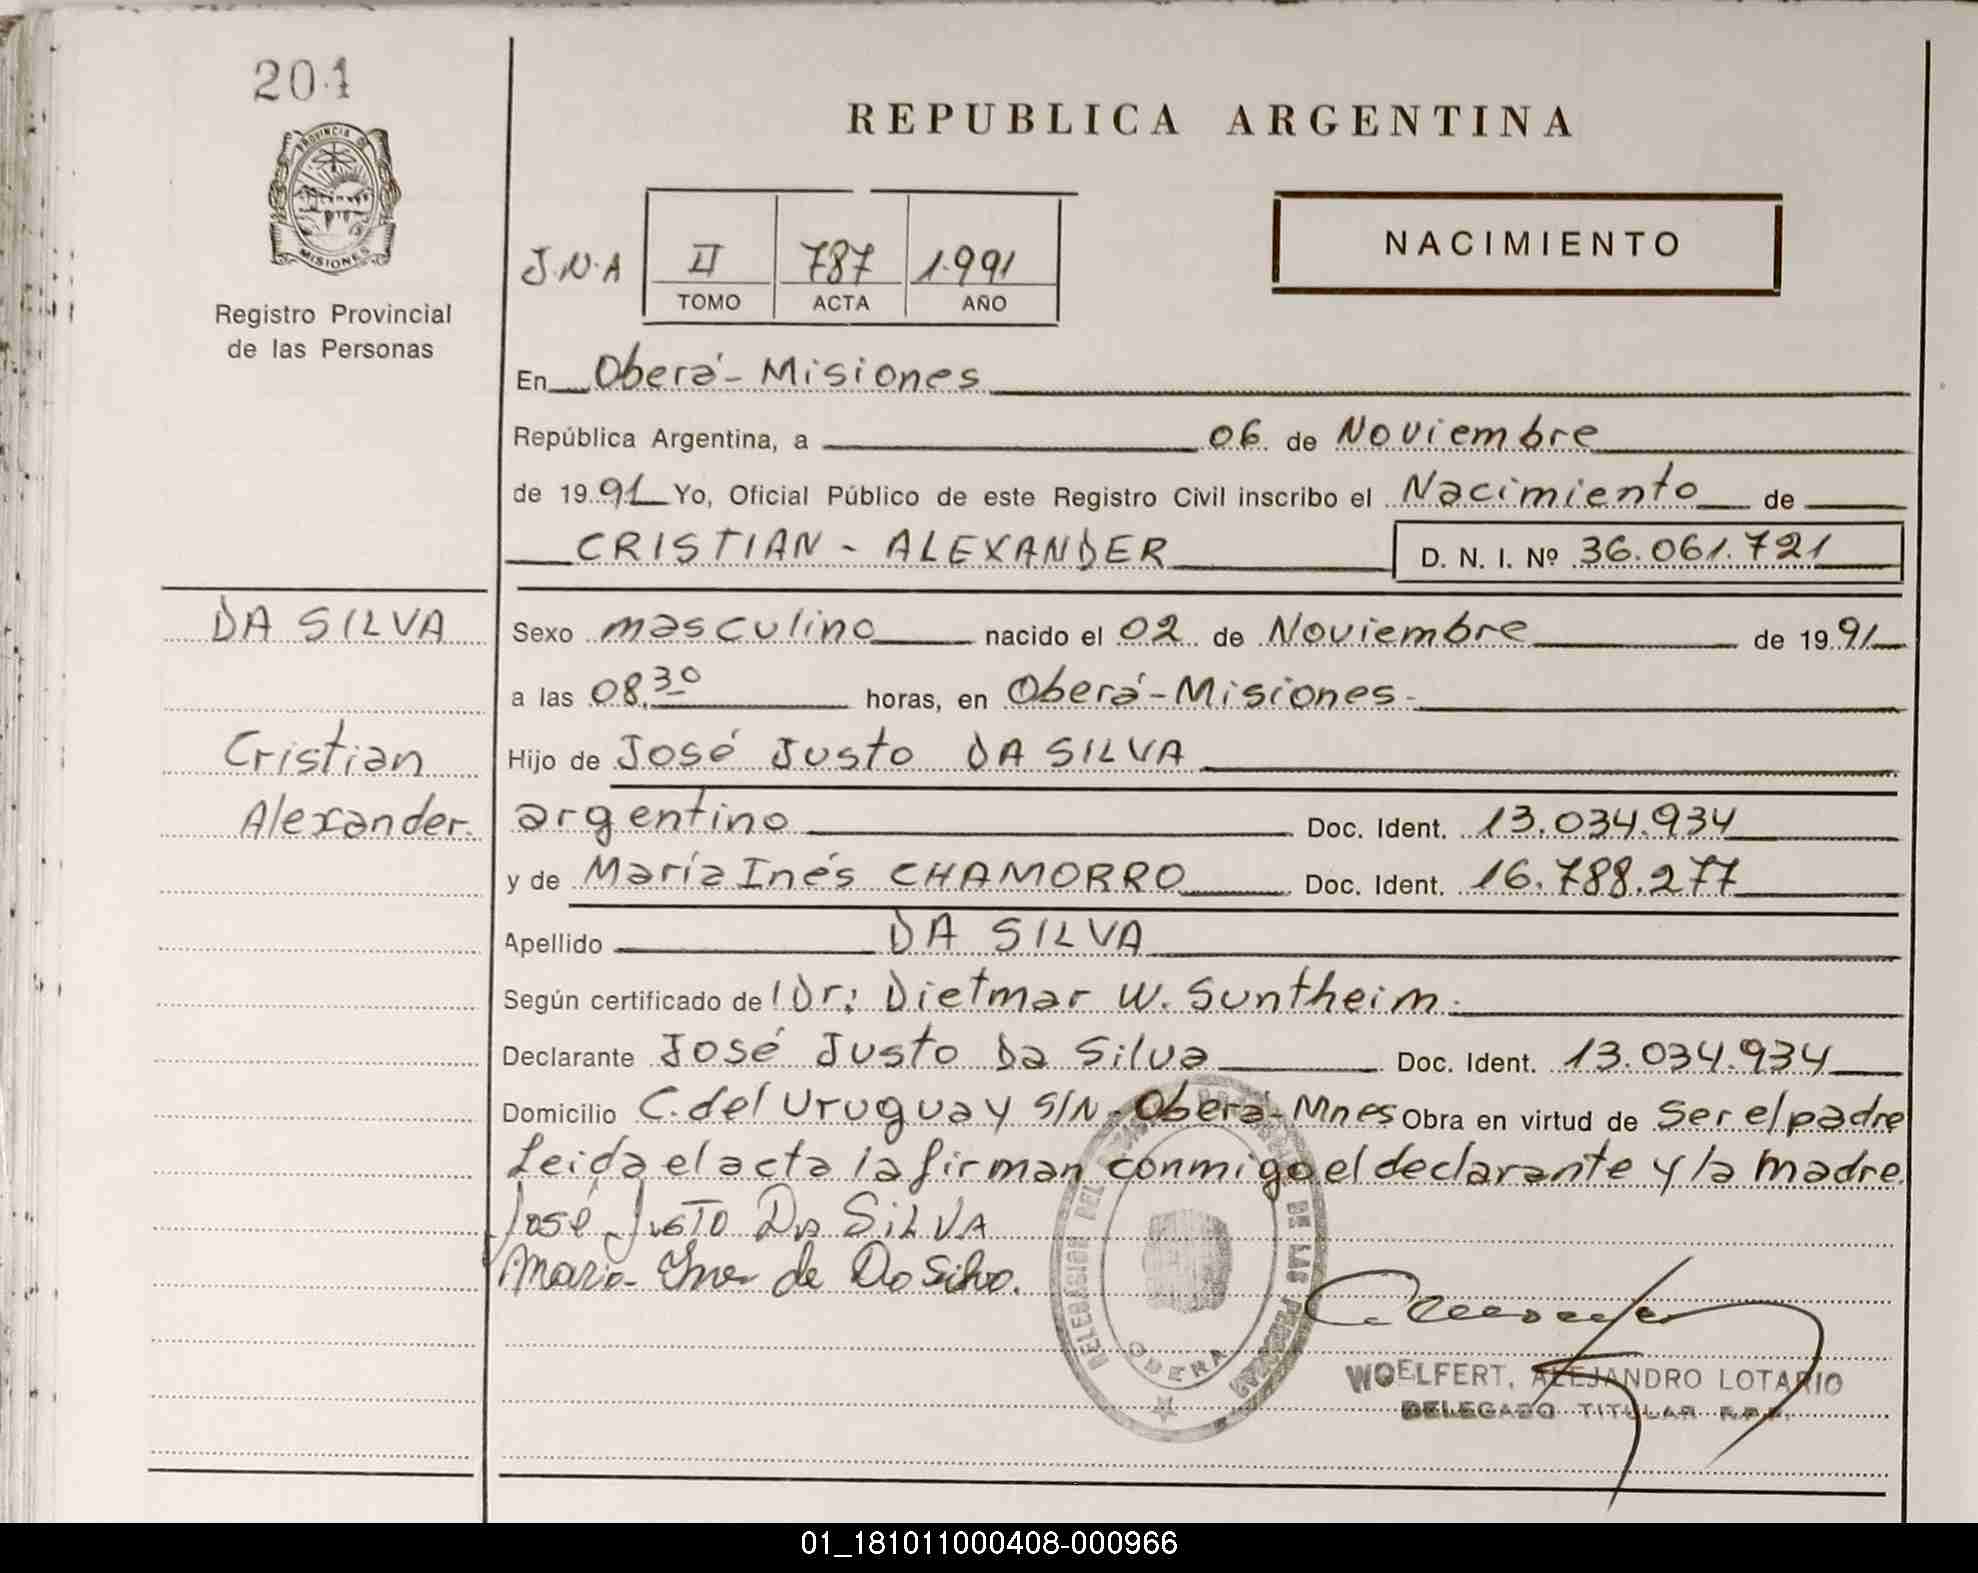 201
PROVINCIA DE
MISIONES
Registro Provincial
de las Personas
REPUBLICA ARGENTINA
J.N.A II 787 1.991
TOMO ACTA AÑO
NACIMIENTO
En Oberá - Misiones
República Argentina, a 06 de Noviembre
de 19 91 Yo, Oficial Público de este Registro Civil inscribo el Nacimiento de
CRISTIAN - ALEXANDER D. N. I. Nº 36.061.721
DA SILVA
Cristian
Alexander.
Sexo masculino nacido el 02 de Noviembre de 19 91
a las 08,30 horas, en Oberá - Misiones -
Hijo de José Justo DA SILVA
argentino Doc. Ident. 13.034.934
y de María Inés CHAMORRO Doc. Ident. 16.788.277
Apellido DA SILVA
Según certificado de Dr: Dietmar W. Suntheim.
Declarante José Justo Da Silva Doc. Ident. 13.034.934
Domicilio C. del Uruguay S/N - Oberá - Mnes Obra en virtud de ser el padre
Leida el acta la firman conmigo el declarante y la madre.
José Justo Da SILVA
Maria Ines de Da Silva.
DELEGACION DEL DE LAS PERSONAS
OBERA
WOELFERT, ALEJANDRO LOTARIO
DELEGADO TITULAR R.P.P.
01_181011000408-000966